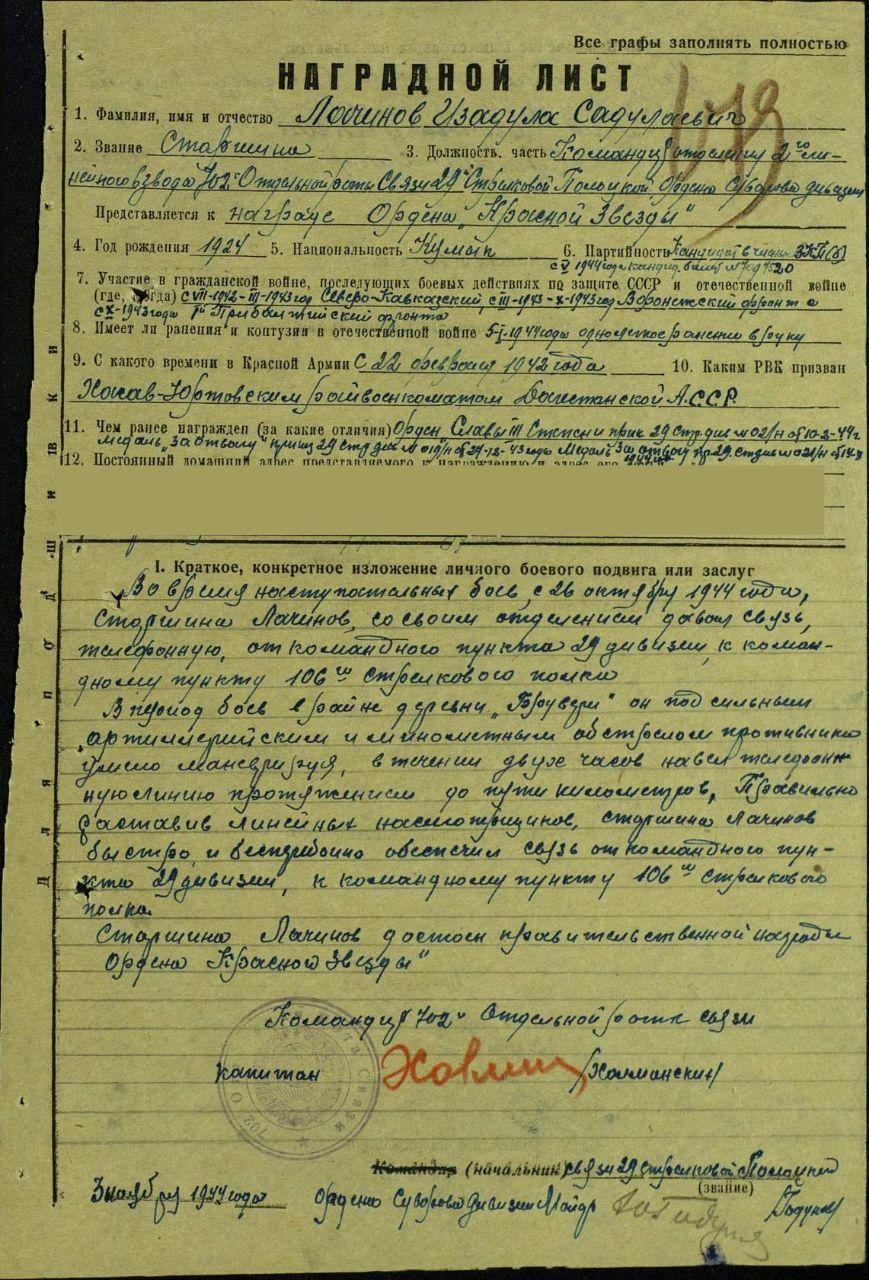 Все графы заполнять полностью
НАГРАДНОЙ ЛИСТ
1. Фамилия, имя и отчество Лачинов Изадула Садулаевич
2. Звание Старшина 3. Должность, часть Командир отделения 2го ли-
нейного взвода 702й Отдельной роты Связи 29й Стрелковой Полоцкой Ордена Суворова дивизии
Представляется к награде Ордена „Красной Звезды"
4. Год рождения 1924 5. Национальность Кумык 6. Партийность Кандидат в члены ВКП(б)
с V 1944 года кандид. билет
7. Участие в гражданской войне, последующих боевых действиях по защите СССР и отечественной войне
(где, когда) с VIII-1942-III-1943 год Северо-Кавказский, с III-1943-X-1943 год Воронежский фронт а
с X-1943 года 1й Прибалтийский фронта
8. Имеет ли ранения и контузии в отечественной войне 5-I-1944 года одно легкое ранение в руку
9. С какого времени в Красной Армии С 22 февраля 1942 года 10. Каким РВК призван
Хасав-Юртовским райвоенкоматом Дагестанской А.С.С.Р.
11. Чем ранее награжден (за какие отличия) Орден Славы III Степени прик 29 Стр. див № 021/н от 10-X-44г
Медаль „За отвагу" приказ 29 стр див № 019/н от 24-12-43 года Медаль За отвагу пр 29 ст див № 021/н от
12. Постоянный домашний адрес представляемого к награждению и адрес его
Для подшивки
I. Краткое, конкретное изложение личного боевого подвига или заслуг
Во время наступательных боев, с 26 октября 1944 года,
Старшина Лачинов, со своим отделением давал связь,
телефонную, от командного пункта 29 дивизии, к коман-
дному пункту 106го стрелкового полка
В период боев в районе деревни „Брувери" он под сильным
артиллерийским и минометным обстрелом противника
умело маневрируя, в течении двух часов навел телефон
ную линию протяжением до пяти километров, Правильно
раставив линейных насмотрщиков, старшина Лачинов
быстро, и бесперебойно обеспечил связь от командного пун-
кта 29 дивизии, к командному пункту 106го стрелкового
полка.
Старшина Лачинов достоин правительственной награды
Ордена Красной Звезды"
Командир 702й Отдельной роты связи
капитан
Командир (начальник) связи 29 стрелковой Полоцкой
(звание)
3 ноября 1944 года Ордена Суворова дивизии Майор